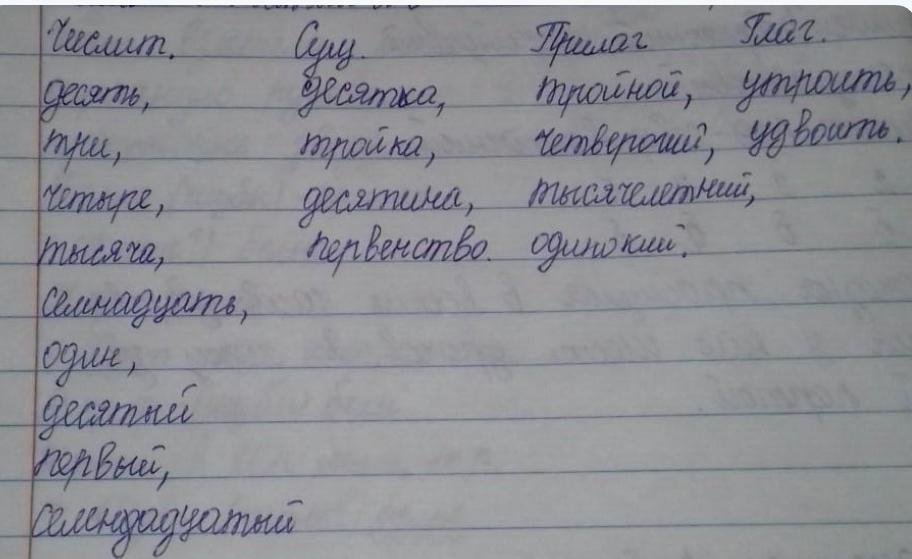 Числит. Сущ. Прилаг Глаг.
десять, десятка, тройной, утроить,
три, тройка, четвероший, удвоить.
четыре, десятина, тысячелетний,
тысяча, первенство. одинокий.
семнадцать,
один,
десятый
первый,
семндадцатый